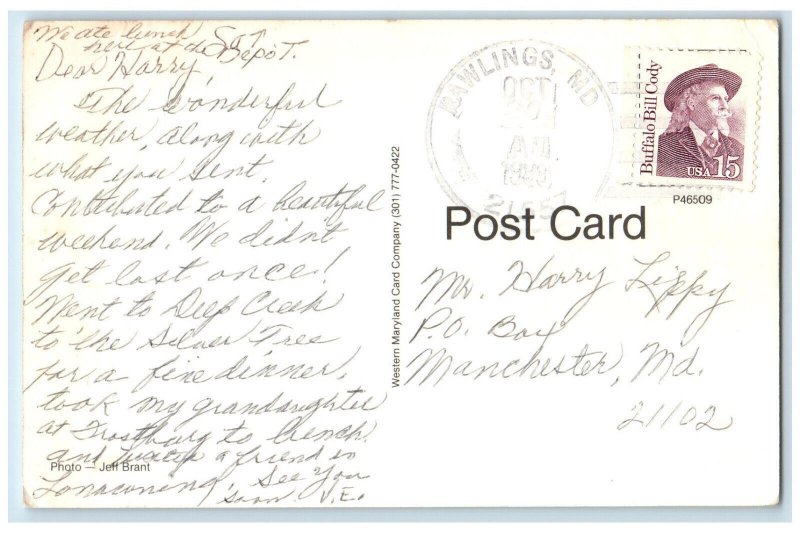 We ate lunch
here at the Depot.
Dear Harry,
The wonderful
weather, along with
what you sent
Contributed to a beautiful
weekend. We didnt
get lost once!
Went to Deep Creek
to the Silver Tree
for a fine dinner,
took my grandaughter
at Frostburg to lunch
and a friend in
Lonaconing, See You
soon V.E.
Photo — Jeff Brant
Western Maryland Card Company (301) 777-0422
RAWLINGS, MD
OCT
AM
Buffalo Bill Cody
USA 15
P46509
Post Card
Mr. Harry Lippy
P.O. Box
Manchester, Md.
21102